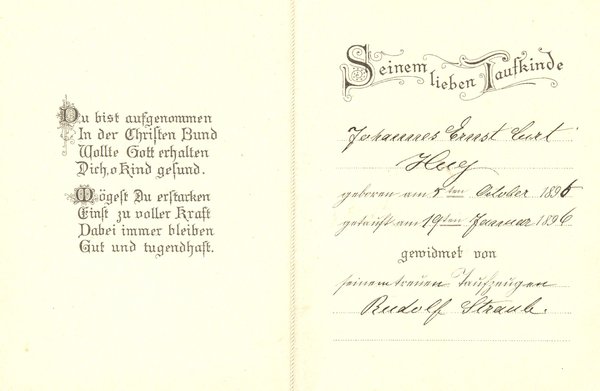 Du bist aufgenommen
In der Christen Bund
Wollte Gott erhalten
Dich, o Kind gesund.
Mögest Du erstarken
Einst zu voller Kraft
Dabei immer bleiben
Gut und tugendhaft.
Seinem lieben Taufkinde
Johannes Ernst Curt
Hug
geboren am ten October 1895
getauft am 19ten Januar 1896
gewidmet von
seinem treuen Taufzeugen
Rudolf Straub.